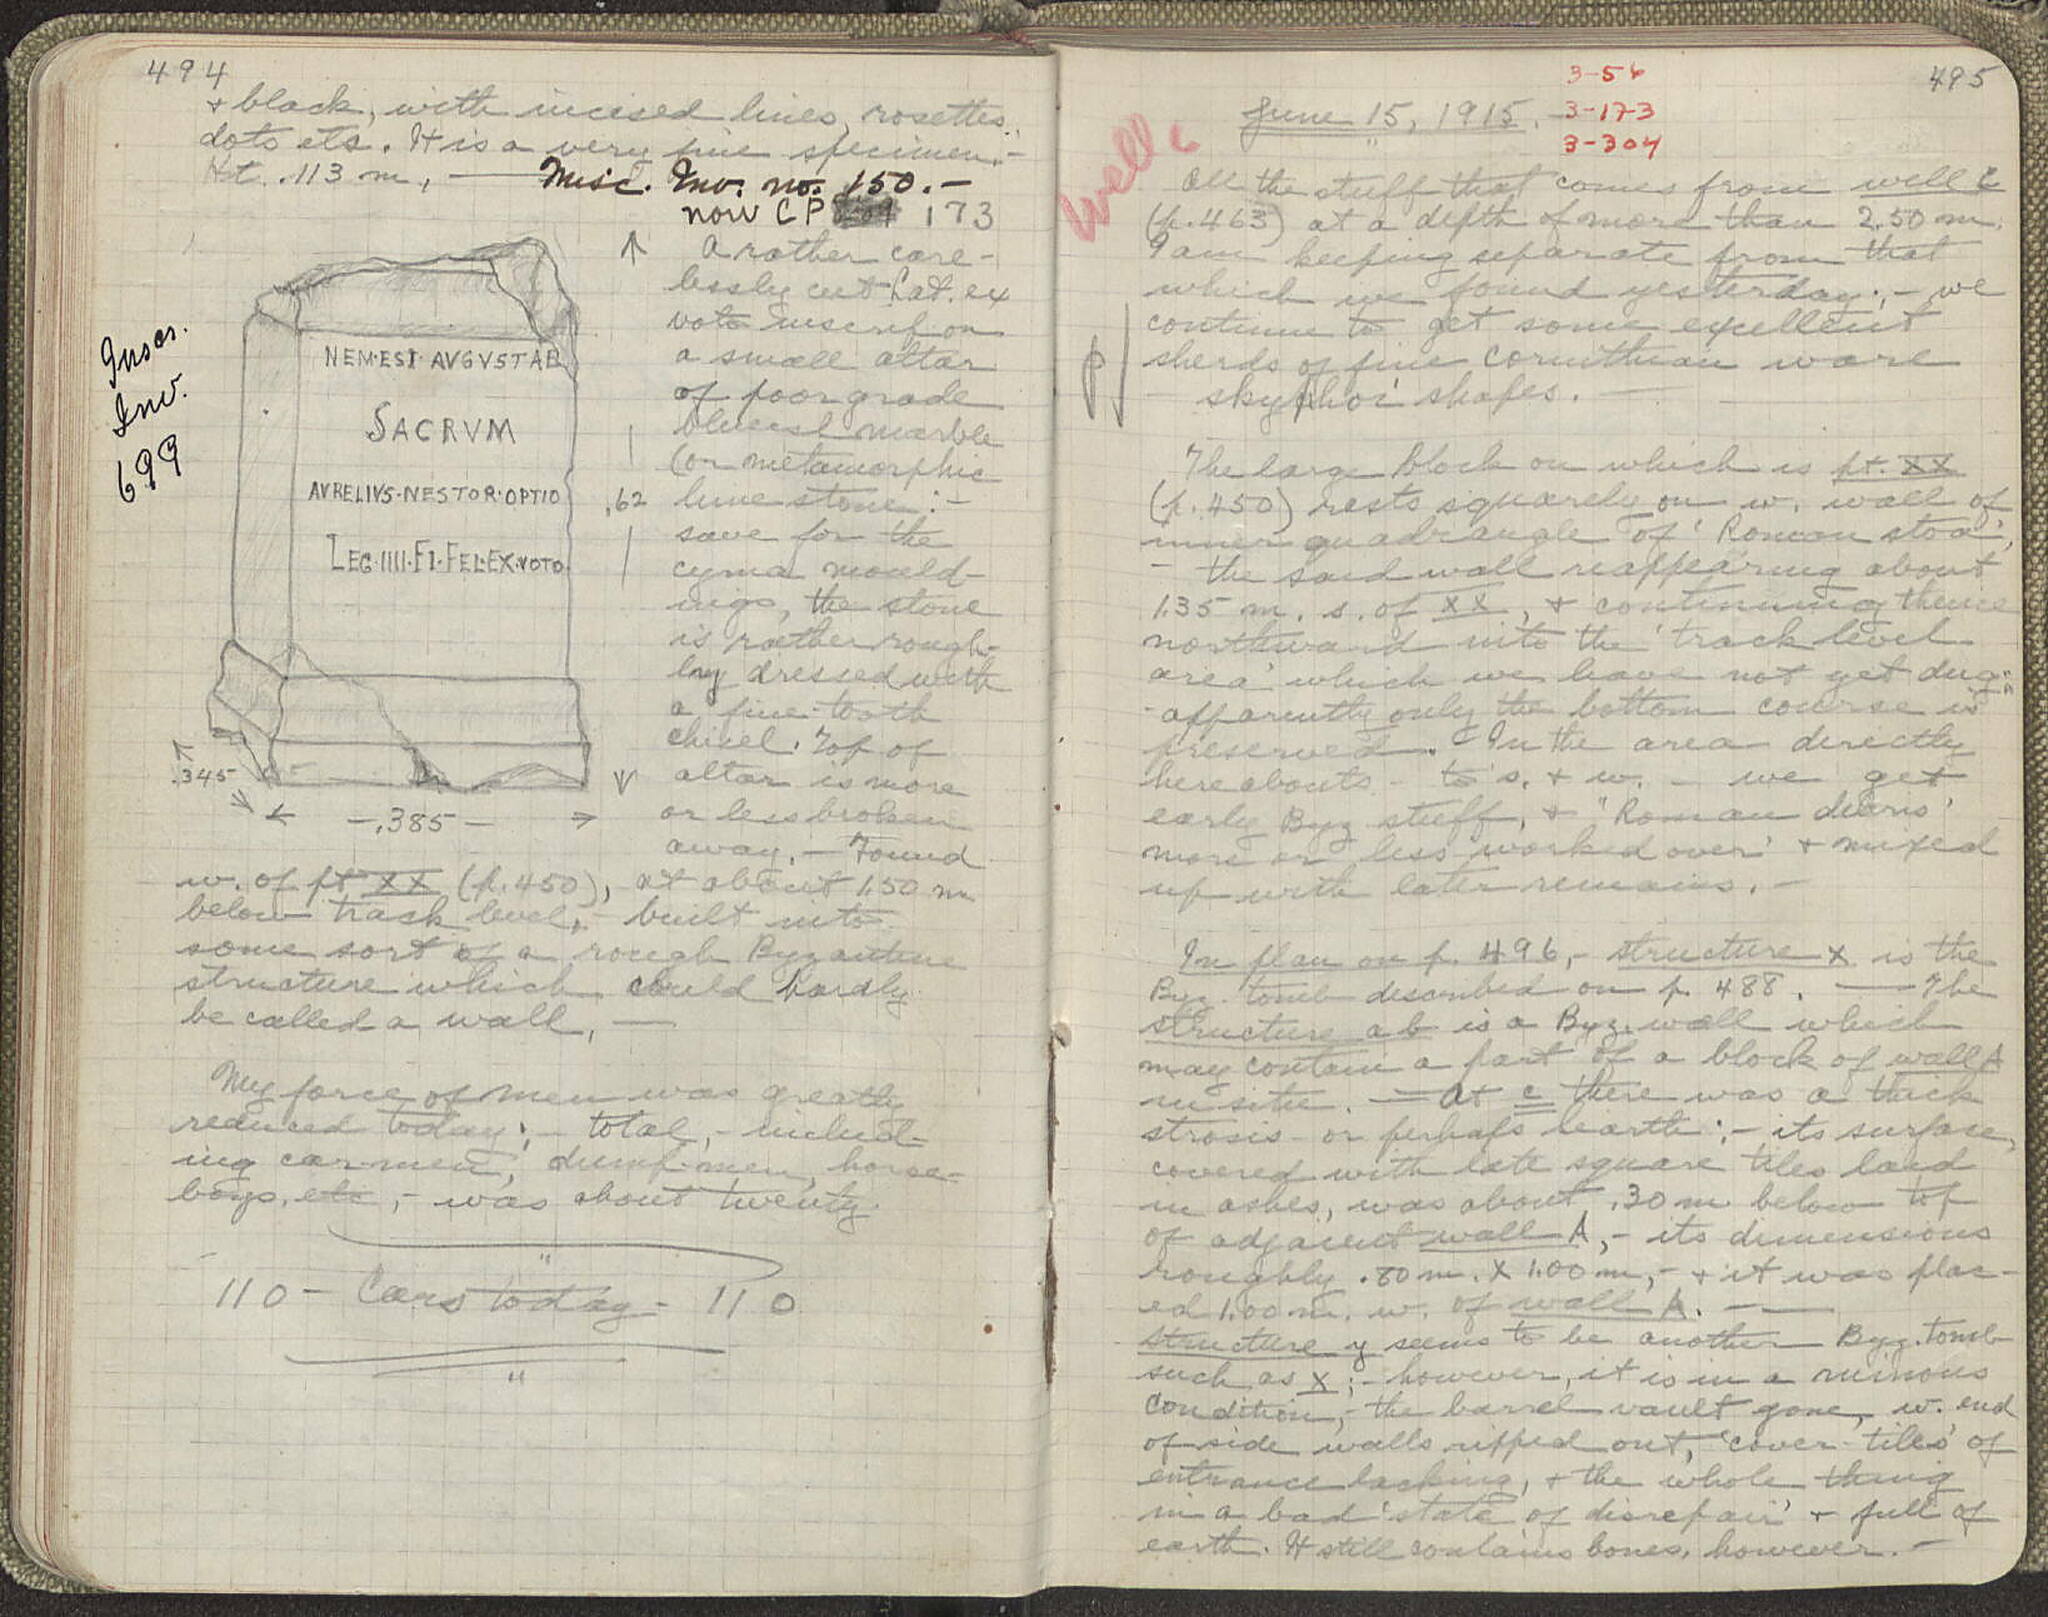 494
+ black, with incised lines, rosettes,
dots etc. It is a very fine specimen.—
Ht. .113 m. — Misc. Inv. no. 150.—
now CP 173
Inscr.
Inv.
699
NEM·ESI· AVGVSTAE
SACRVM
AVRELIVS·NESTOR·OPTIO
LEG·IIII·Fl·FEL·EX·VOTO
.62
.345
— .385 —
A rather care-
lessly cut Lat. ex
voto inscrip. on
a small altar
of poor grade
blueish marble
(or metamorphic
lime stone:—
save for the
cyma mould-
ings, the stone
is rather rough-
ly dressed with
a fine-tooth
chisel. Top of
altar is more
or less broken
away. — Found
w. of pt XX (p.450), at about 1.50 m
below track level,— built into
some sort of a rough Byzantine
structure which could hardly
be called a wall. —
My force of men was greatly
reduced today;— total,— includ-
ing car-men, dump-men, horse-
boys, etc,— was about twenty.
110 — Cars today — 110
495
3-56
3-173
3-304
June 15, 1915.
Well c
All the stuff that comes from well C
(p.463) at a depth of more than 2.50 m.
I am keeping separate from that
which we found yesterday;— we
continue to get some excellent
sherds of fine Corinthian ware
p/
— skyphoi shapes. —
The large block on which is pt. XX
(p.450) rests squarely on w. wall of
inner quadrangle of 'Roman stoa',
— the said wall reappearing about
1.35 m. s. of XX, + continuing thence
northward into the 'track level
area' which we have not yet dug:—
- apparently only the bottom course is
preserved. In the area directly
hereabouts — to s. + w. — we get
early Byz stuff, + 'Roman debris'
more or less 'worked over' + mixed
up with later remains. —
In plan on p. 496,— structure x is the
Byz. tomb described on p. 488. — The
structure ab is a Byz. wall which
may contain a part of a block of wall A
in situ. — At c there was a thick
strosis — or perhaps hearth;— its surface,
covered with late square tiles laid
in ashes, was about .30 m below top
of adjacent wall A,— its dimensions
roughly .80 m. x 1.00 m,— + it was plac-
ed 1.00 m. w. of wall A. —
Structure y seems to be another Byz. tomb
such as x;— however, it is in a ruinous
condition,— the barrel vault gone, w. end
of side walls ripped out, 'cover-tiles' of
entrance lacking, + the whole thing
in a bad 'state of disrepair' + full of
earth. It still contains bones, however. —